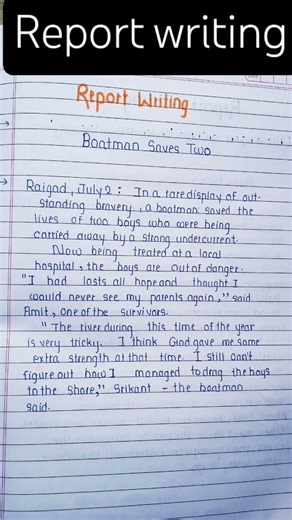 Report writing
Report Writing
Boatman Saves Two
Raigad, July 2 : In a rare display of out-
standing bravery, a boatman saved the
lives of two boys who were being
carried away by a strong undercurrent.
Now being treated at a local
hospital, the boys are out of danger.
"I had losts all hope and thought I
would never see my parents again," said
Amit, one of the survivors.
" The river during this time of the year
is very tricky. I think God gave me some
extra strength at that time. I still can't
figure out how I managed to drag the boys
to the shore," Srikant - the boatman
said.